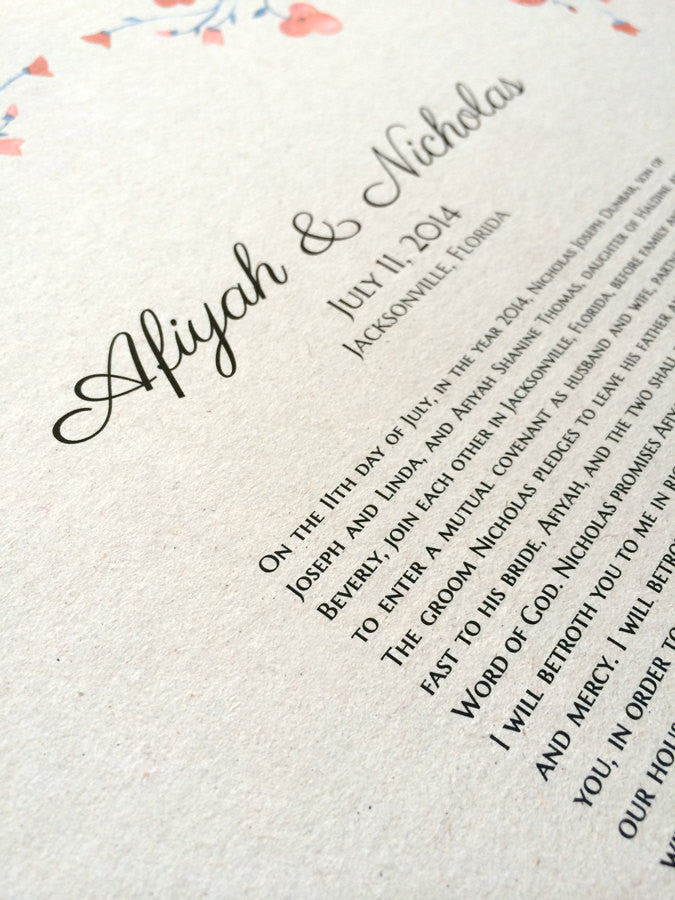 Afiyah & Nicholas
July 11, 2014
Jacksonville, Florida
On the 11th day of July, in the year 2014, Nicholas Joseph Dunbar, son of
Joseph and Linda, and Afiyah Shanine Thomas, daughter of Haldine
Beverly, join each other in Jacksonville, Florida, before family and
to enter a mutual covenant as husband and wife,
The groom Nicholas pledges to leave his father
fast to his bride, Afiyah, and the two shall
Word of God. Nicholas promises
I will betroth you to me in
and mercy. I will
you, in order to
our